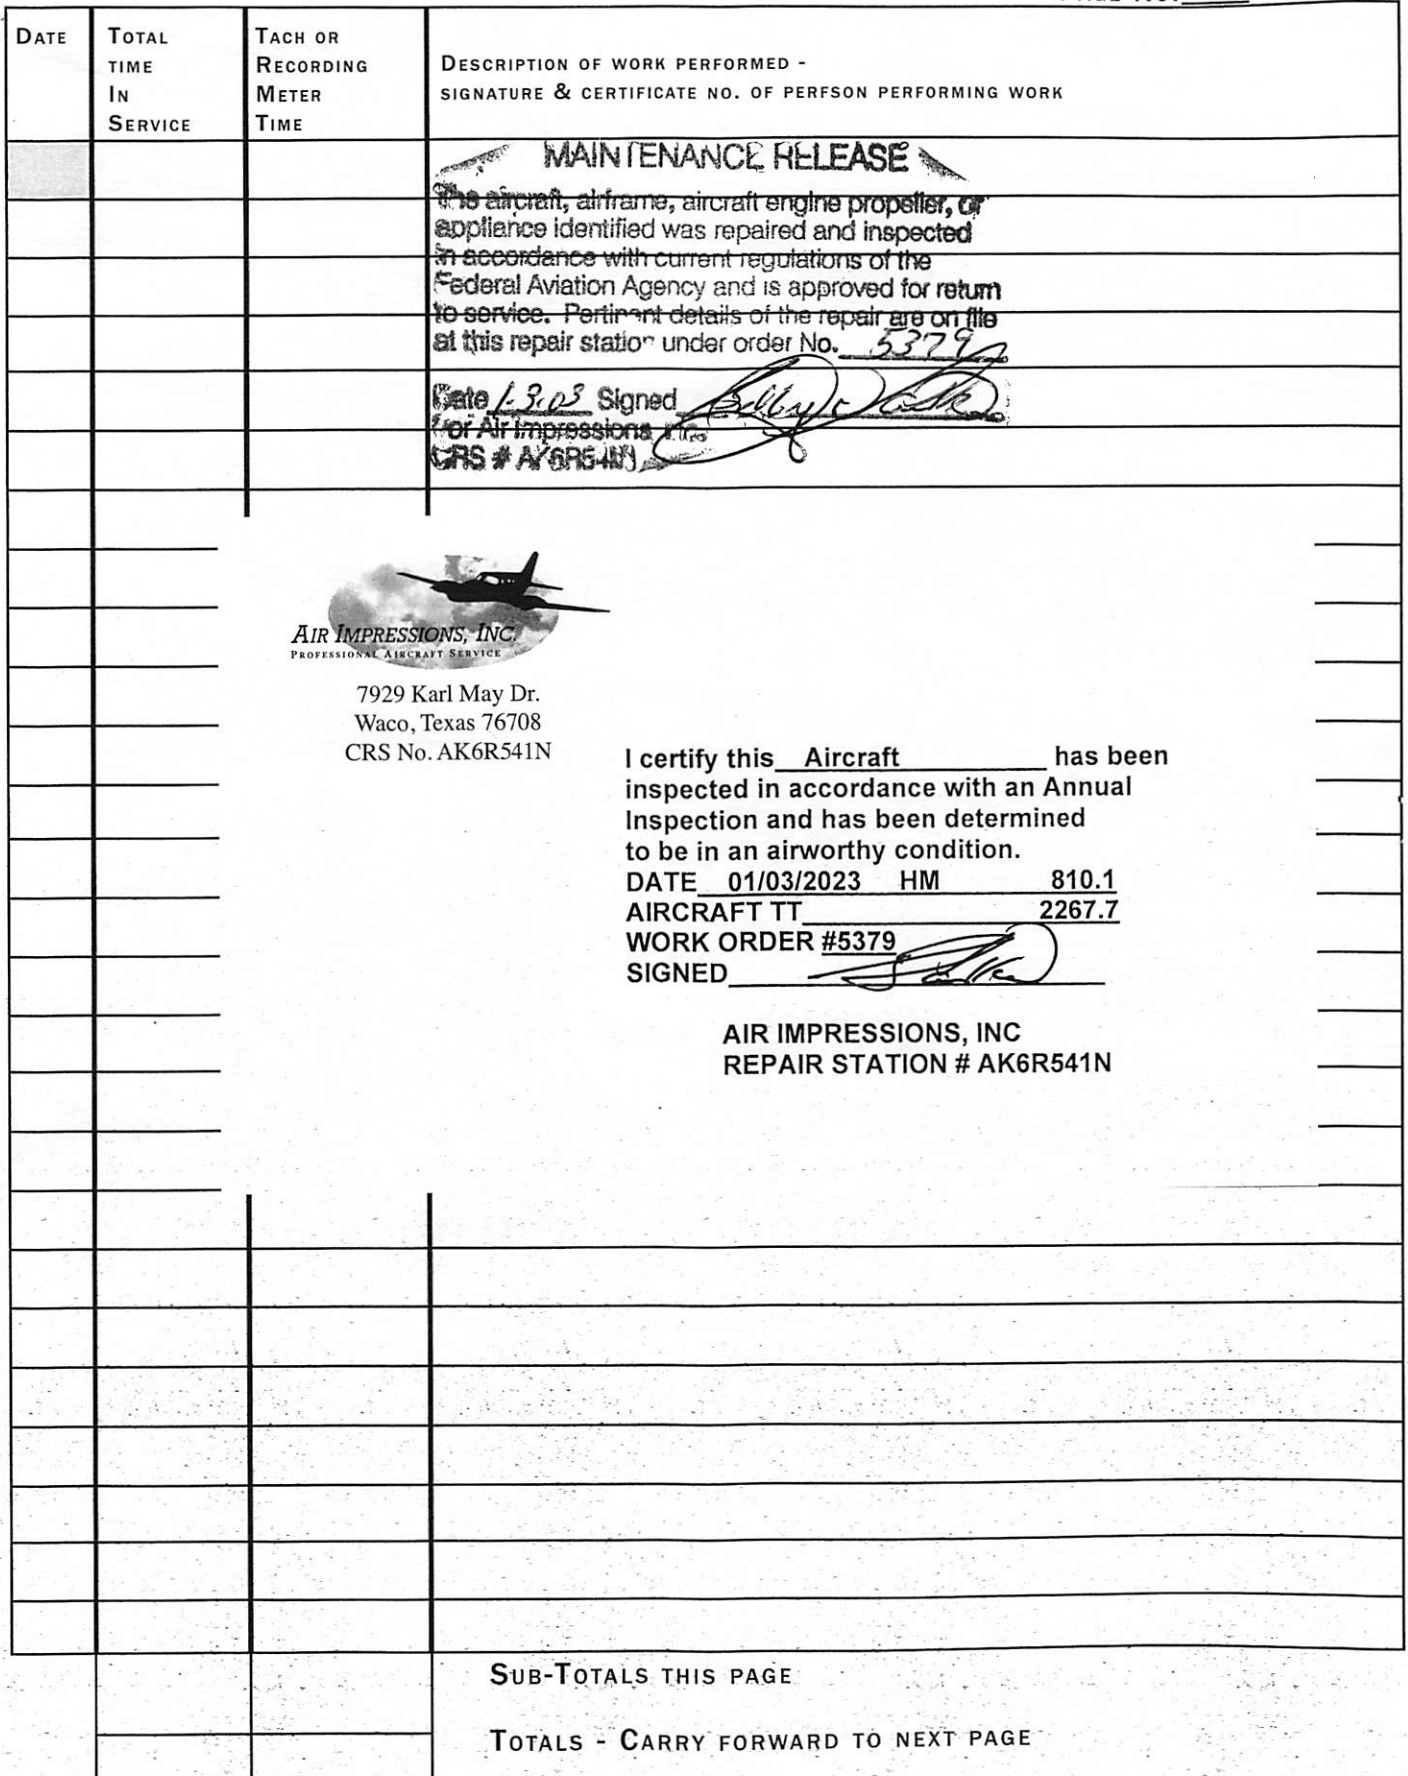 DATE
TOTAL
TIME
IN
SERVICE
TACH OR
RECORDING
METER
TIME
DESCRIPTION OF WORK PERFORMED -
SIGNATURE & CERTIFICATE NO. OF PERFSON PERFORMING WORK
MAINTENANCE RELEASE
The aircraft, airframe, aircraft engine propeller, or
appliance identified was repaired and inspected
in accordance with current regulations of the
Federal Aviation Agency and is approved for return
to service. Pertinent details of the repair are on file
at this repair station under order No. 5379
Date 1.3.03 Signed
for Air Impressions, Inc.
CRS # AK6R541N
AIR IMPRESSIONS, INC.
PROFESSIONAL AIRCRAFT SERVICE
7929 Karl May Dr.
Waco, Texas 76708
CRS No. AK6R541N
I certify this Aircraft has been
inspected in accordance with an Annual
Inspection and has been determined
to be in an airworthy condition.
DATE 01/03/2023 HM 810.1
AIRCRAFT TT 2267.7
WORK ORDER #5379
SIGNED
AIR IMPRESSIONS, INC
REPAIR STATION # AK6R541N
SUB-TOTALS THIS PAGE
TOTALS - CARRY FORWARD TO NEXT PAGE